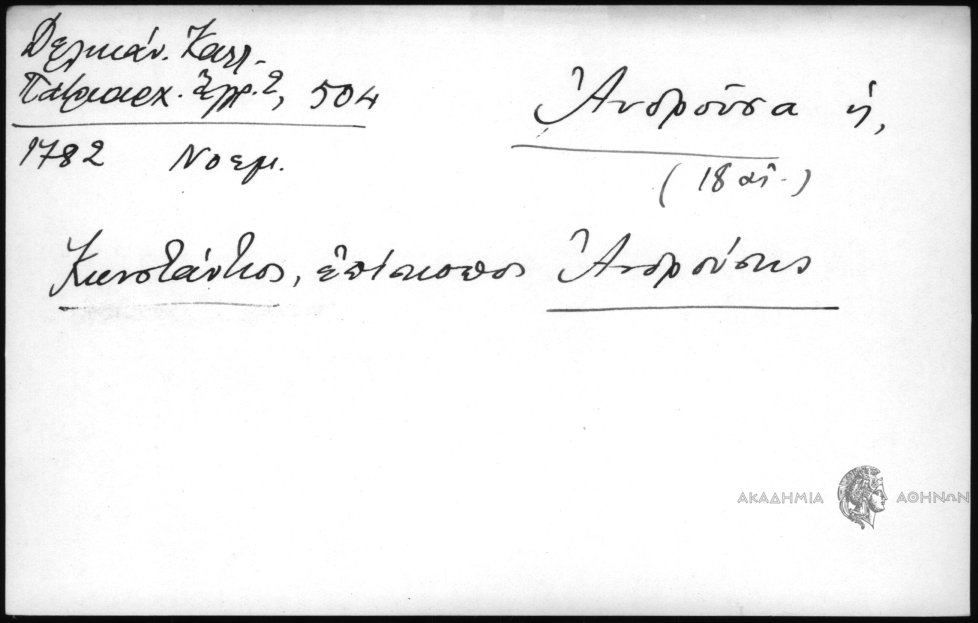 Δελικάν. Καλλ.
Πατριαρχ. Ἔγγρ. 2, 504
1782 Νοεμ.
Ἀνδροῦσα ἡ,
(18 αἰ.)
Κωνστάντιος, ἐπίσκοπος Ἀνδρούσης
ΑΚΑΔΗΜΙΑ ΑΘΗΝΩΝ